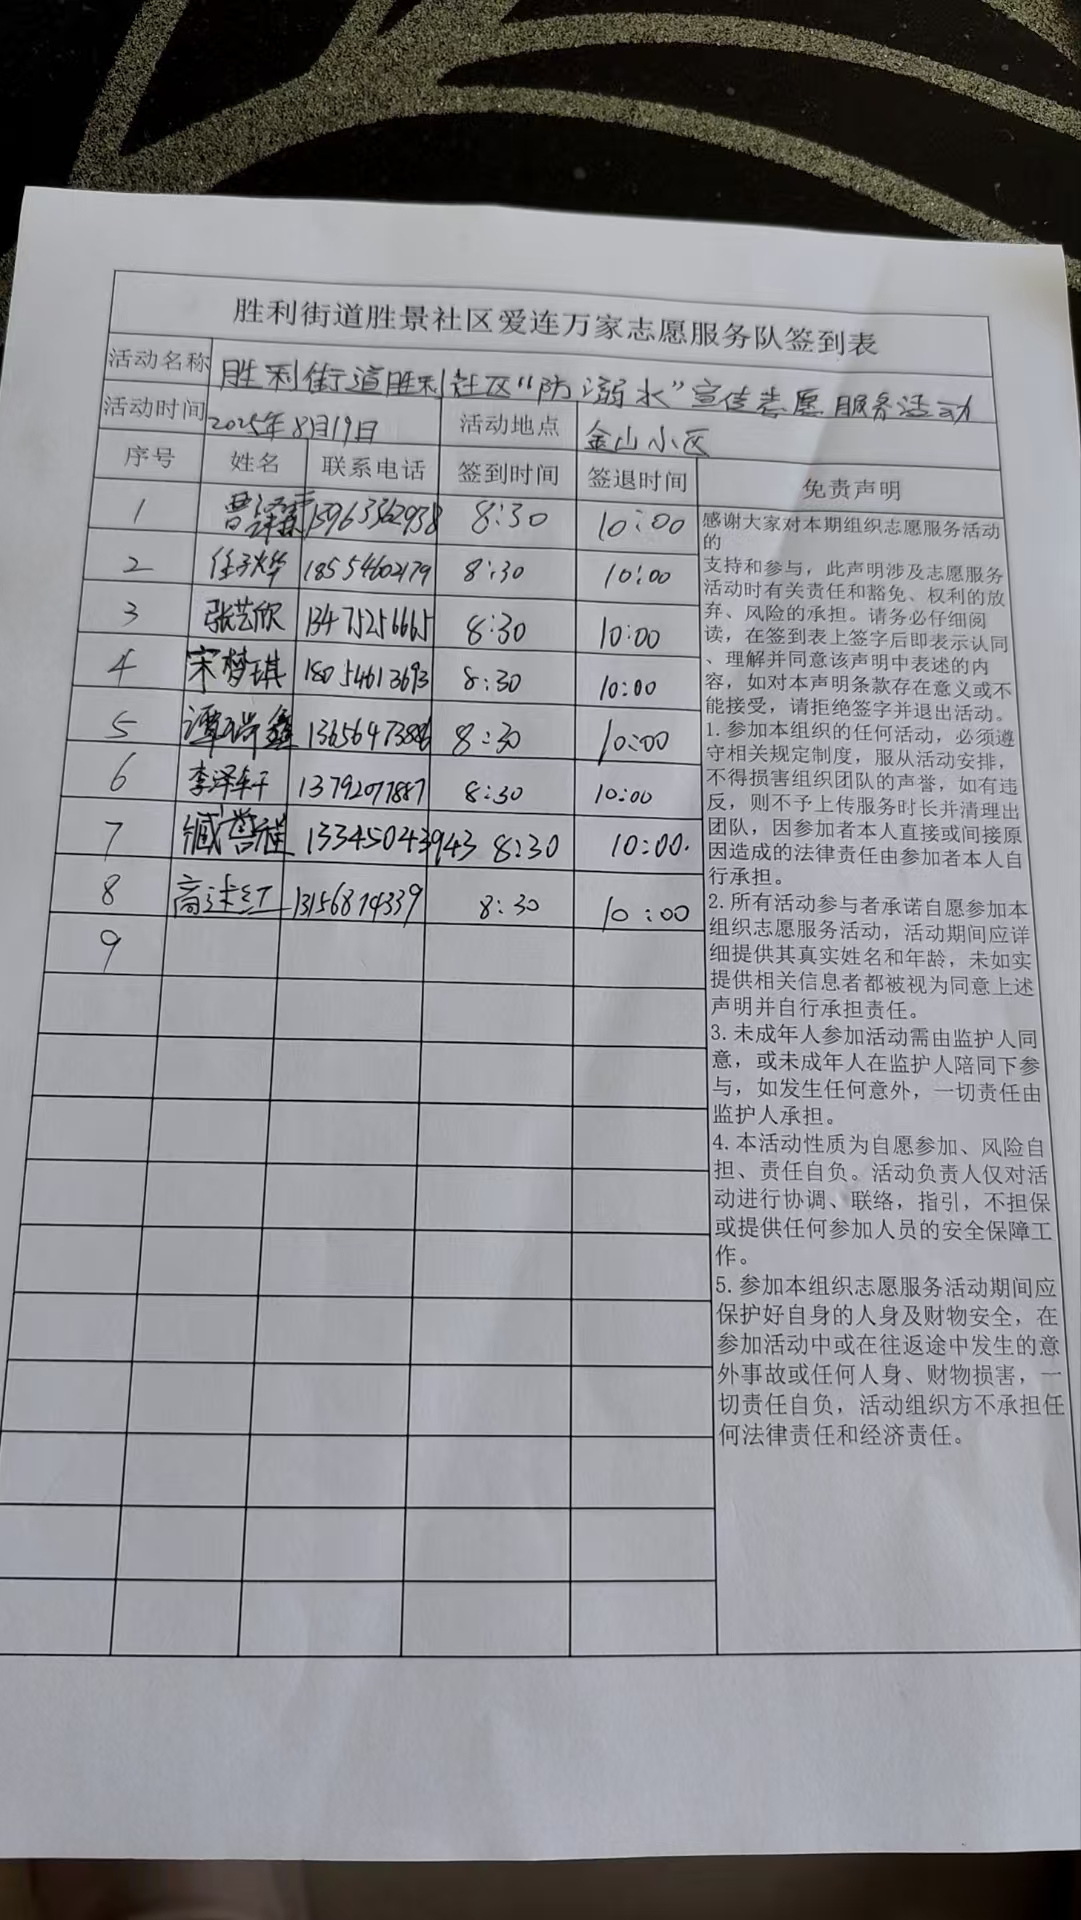 胜利街道胜景社区爱连万家志愿服务队签到表
活动名称 胜利街道胜利社区“防溺水”宣传志愿服务活动
活动时间 2025年8月19日 活动地点 金山小区
序号 姓名 联系电话 签到时间 签退时间 免责声明
1 曹泽霖 15963362938 8:30 10:00
2 任子烨 18554602179 8:30 10:00
3 张艺欣 13475256665 8:30 10:00
4 宋梦琪 18054613693 8:30 10:00
5 谭瑞鑫 8:30 10:00
6 李泽轩 13792077887 8:30 10:00
7 臧誉程 13345043943 8:30 10:00.
8 高述红 13156874339 8:30 10:00
9
感谢大家对本期组织志愿服务活动
的
支持和参与，此声明涉及志愿服务
活动时有关责任和豁免、权利的放
弃、风险的承担。请务必仔细阅
读，在签到表上签字后即表示认同
、理解并同意该声明中表述的内
容，如对本声明条款存在意义或不
能接受，请拒绝签字并退出活动。
1. 参加本组织的任何活动，必须遵
守相关规定制度，服从活动安排，
不得损害组织团队的声誉，如有违
反，则不予上传服务时长并清理出
团队，因参加者本人直接或间接原
因造成的法律责任由参加者本人自
行承担。
2. 所有活动参与者承诺自愿参加本
组织志愿服务活动，活动期间应详
细提供其真实姓名和年龄，未如实
提供相关信息者都被视为同意上述
声明并自行承担责任。
3. 未成年人参加活动需由监护人同
意，或未成年人在监护人陪同下参
与，如发生任何意外，一切责任由
监护人承担。
4. 本活动性质为自愿参加、风险自
担、责任自负。活动负责人仅对活
动进行协调、联络，指引，不担保
或提供任何参加人员的安全保障工
作。
5. 参加本组织志愿服务活动期间应
保护好自身的人身及财物安全，在
参加活动中或在往返途中发生的意
外事故或任何人身、财物损害，一
切责任自负，活动组织方不承担任
何法律责任和经济责任。